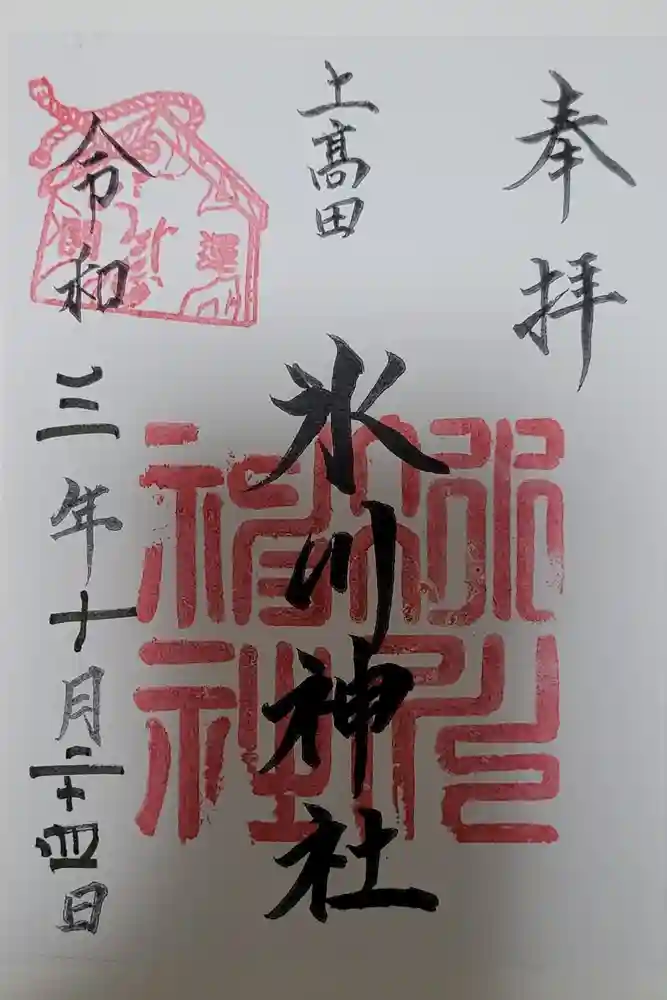 奉拝
上髙田
氷川神社
令和三年十月二十四日
開運